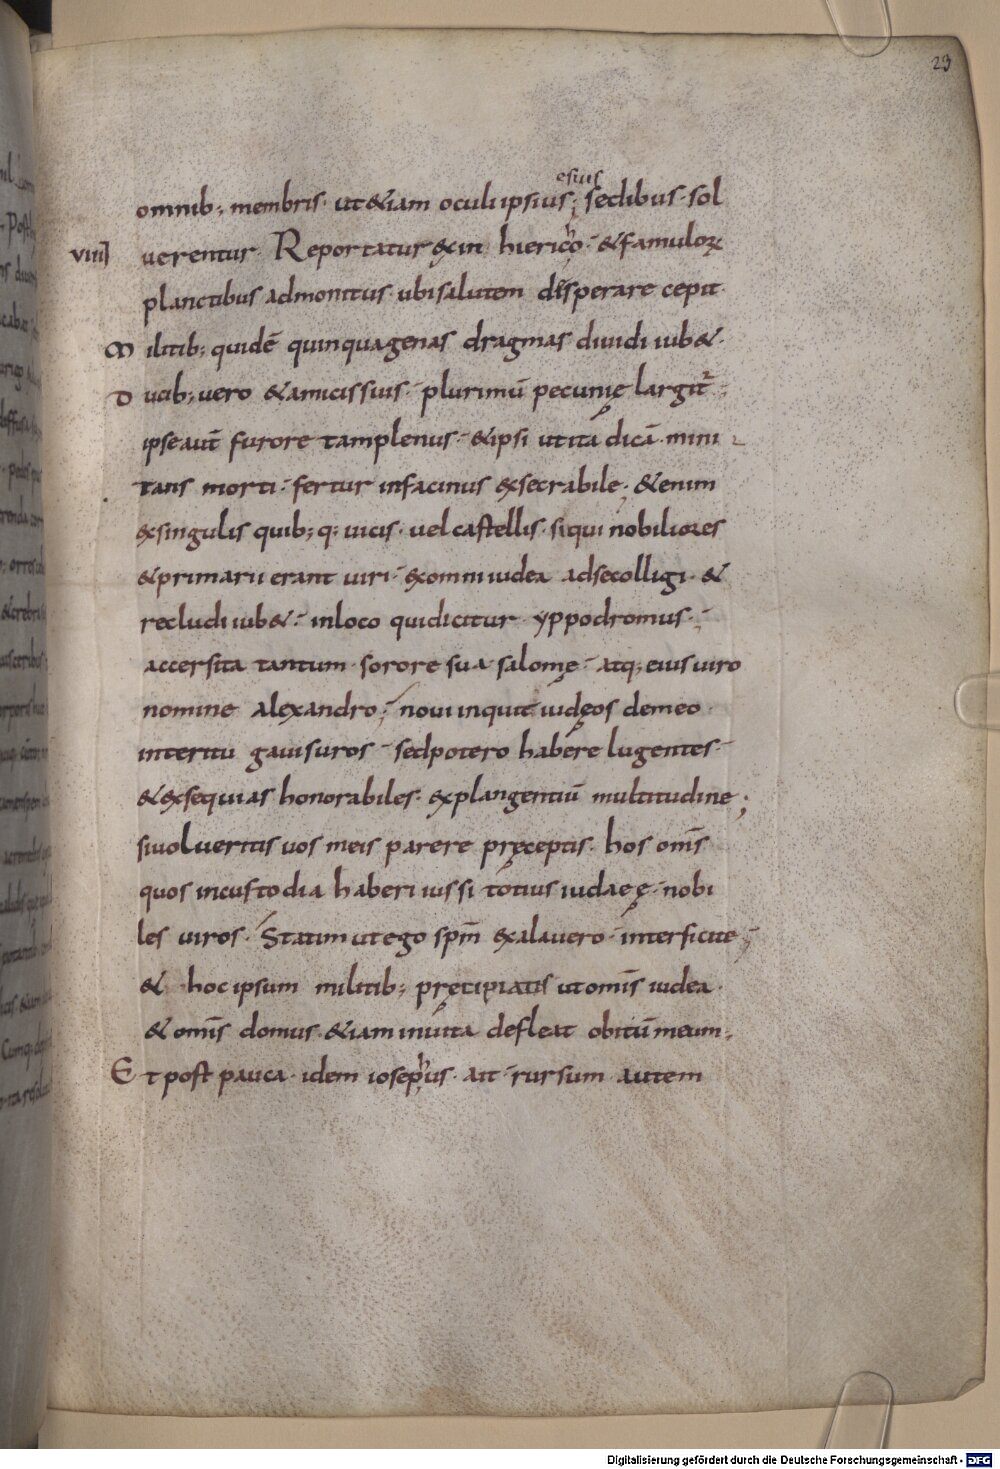 23
esius
omnib; membris· ut &iam oculi ipsius; sedibus· sol
viiii uerentur· Reportatur exin hiericho· & famuloꝝ
planctibus admonitus· ubi salutem disperare cepit·
Militib; quidē quinquagenas dragmas diuidi iub&·
Ducib; uero & amicis suis· plurimū pecunię largit̄·;
ipse aut̄ furore tam plenus· & ipsi ut ita dicā· mini
tans morti· fertur in facinus exsecrabile· &enim
ex singulis quib; q; uicis· uel castellis· si qui nobiliores
& primarii erant uiri· ex omni iudea ad se colligi· &
recludi iub&· in loco qui dicitur yppodromus·;
accersita tantum· sorore sua salomę· atq; eius uiro
nomine alexandro; noui inquit iudęos de meo·
interitu gauisuros· sed potero habere lugentes·
& exsequias honorabiles· ex plangentiū multitudine;
si uolueritis uos meis parere pręceptis· hos om̄s
quos in custodia haberi iussi totius iudaeę· nobi
les uiros· Statim ut ego sp̄m exalauero· interficite;
& hoc ipsum militib; pręcipiatis ut om̄is iudea·
& om̄is domus· &iam inuita defleat obitū meum·;
Et post pauca· idem iosephus· ait· rursum autem
Digitalisierung gefördert durch die Deutsche Forschungsgemeinschaft - DFG